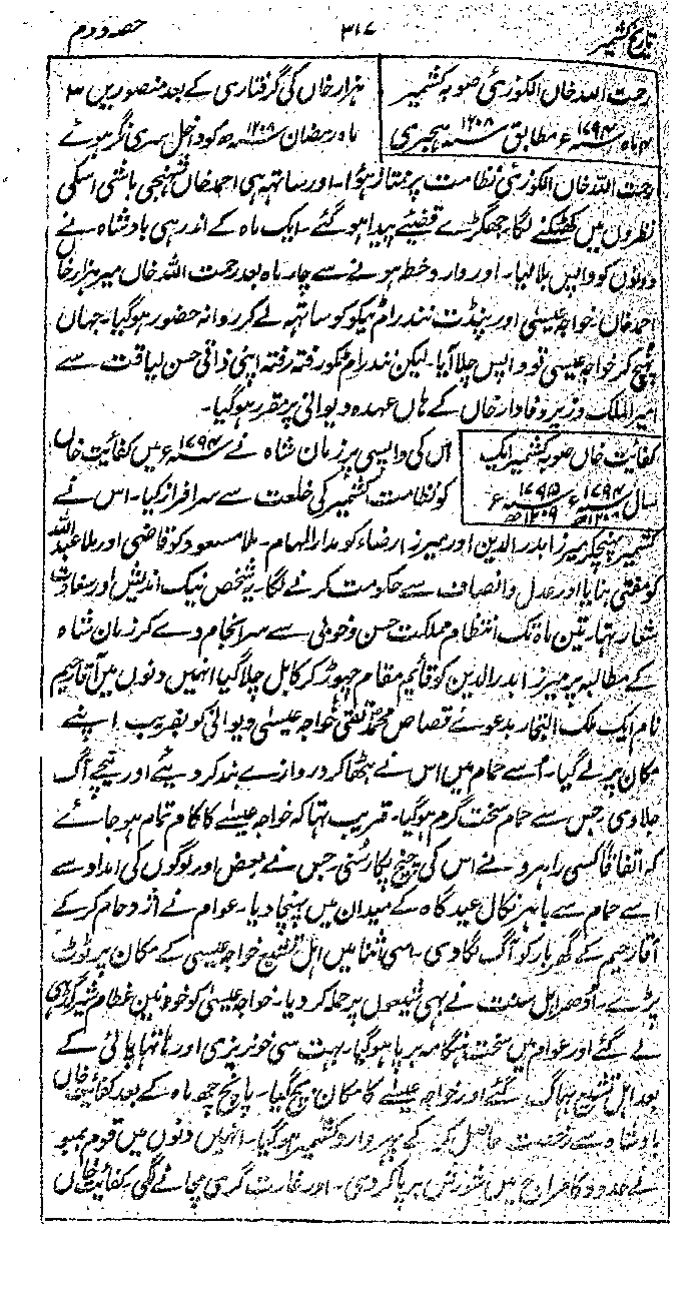 تاریخ کشمیر ۳۱۷ حصہ دوم
رحمت اللہ خاں الکوزئی صوبہ کشمیر
۴ ماہ ۱۷۹۴ء مطابق ۱۲۰۸ ہجری
ہزار خاں کی گرفتاری کے بعد منصور یں ۳
ماہ رمضان ۱۲۰۸ھ کو داخل سری نگر ہوئے
رحمت اللہ خاں الکوزئی نظامت پر ممتاز ہوا۔ اور ساتھ ہی احمد خاں باشی اسکی
نظروں میں کھٹکنے لگا۔ جھگڑے قضیئے پیدا ہو گئے۔ ایک ماہ کے اندر ہی بادشاہ نے
دونوں کو واپس بلا لیا۔ اور وارد خطہ ہونے سے چار ماہ بعد رحمت اللہ خاں میر ہزار خاں
احمد خاں۔ خواجہ عیسیٰ اور پنڈت نندرام ٹیکو کو ساتھ لے کر روانہ حضور ہو گیا۔ جہاں
پہنچ کر خواجہ عیسیٰ تو واپس چلا آیا۔ لیکن نندرام ٹیکو رفتہ رفتہ اپنی ذاتی حسن لیاقت سے
امیر الملک وزیر وفادار خاں کے ہاں عہدہ دیوانی پر مقرر ہو گیا۔
کفائیت خاں صوبہ کشمیر ایک
سال ۱۷۹۴ء ۱۷۹۵ء
۱۲۰۸ھ ۱۲۰۹ھ
اس کی واپسی پر زمان شاہ نے ۱۷۹۴ء میں کفائیت خاں
کو نظامت کشمیر کی خلعت سے سرافراز کیا۔ اس نے
کشمیر پہنچکر میرزا بدر الدین اور میرزا رضاء کو مدار المہام۔ ملا مسعود کو قاضی اور ملا عبد اللہ
کو مفتی بنایا اور عدل و انصاف سے حکومت کرنے لگا۔ یہ شخص نیک اندیش اور سعادت
شعار تہا۔ تین ماہ تک انتظام مملکت حسن و خوبی سے سرانجام دے کر زمان شاہ
کے مطالبہ پر میرزا بدر الدین کو قائیم مقام چہوڑ کر کابل چلا گیا انہیں دنوں میں آقا رحیم
نام ایک ملک التجار بدعوئے قصاص محمد تقی خواجہ عیسیٰ دیوانی کو بفریب اپنے
مکان پر لے گیا۔ اُسے حمام میں اس نے بٹھا کر دروازے بند کر دیئے اور نیچے آگ
جلا دی جس سے حمام سخت گرم ہو گیا۔ قریب تہا کہ خواجہ عیسے کا کام تمام ہو جائے
کہ اتفاقاً کسی راہرو نے اس کی چیخ پکار سنی جس نے بعض اور لوگوں کی امداد سے
اسے حمام سے باہر نکال عیدگاہ کے میدان میں پہنچا دیا۔ عوام نے ازدحام کر کے
آقا رحیم کے گھر بار کو آگ لگا دی۔ اسی اثنا میں اہل تشیع خواجہ عیسیٰ کے مکان پر ٹوٹ
پڑے۔ اُدھر اہل سنت نے بہی شیعوں پر حملہ کر دیا۔ خواجہ عیسیٰ کو خوانین عظام شیر گڈہی
لے گئے اور عوام میں سخت ہنگامہ برپا ہو گیا۔ بہت سی خونریزی اور ہاتہا پائی کے
بعد اہل تشیع بہاگ گئے اور خواجہ عیسے کا مکان بچ گیا۔ پانچ چھ ماہ کے بعد کفائیت خاں
بادشاہ سے رخصت حاصل کر کے پہر وارد کشمیر ہو گیا۔ انہیں دنوں میں قوم بمبو
نے حدود کامراج میں شورش برپا کر دی۔ اور غارت گری مچانے لگی۔ کفائیت خاں